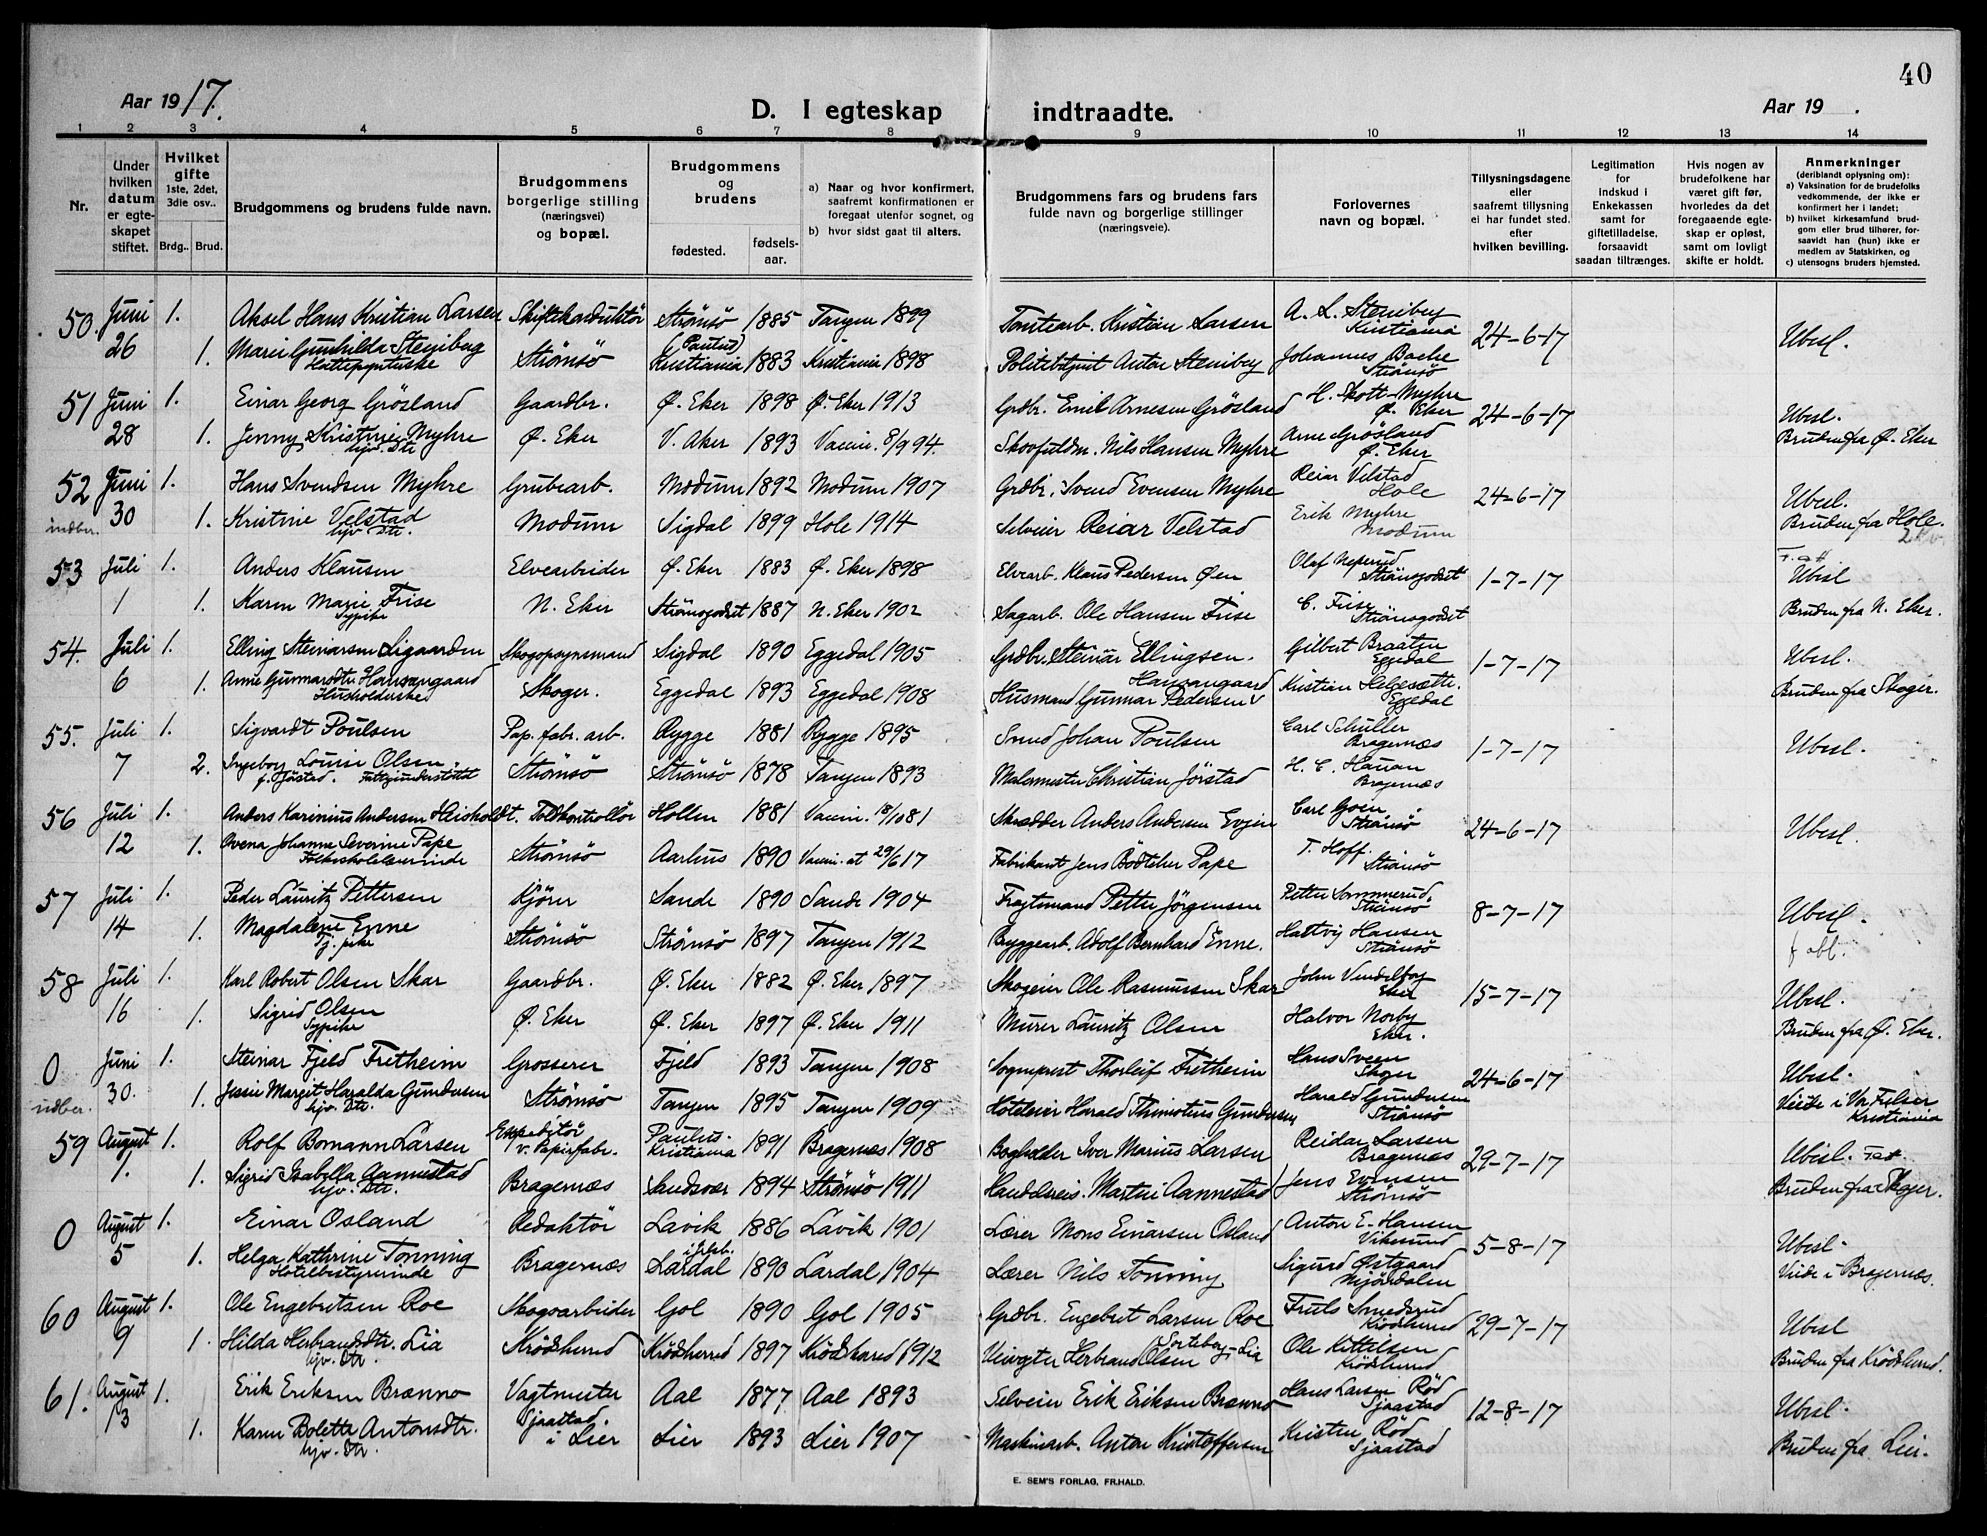 40
Aar 1917.
D. I egteskap indtraadte.
Aar 19 .
1 2 3 4 5 6 7 8 9 10 11 12 13 14
Nr.
Under hvilken datum er egteskapet stiftet.
Hvilket gifte 1ste, 2det, 3die osv..
Brdg.. Brud.
Brudgommens og brudens fulde navn.
Brudgommens borgerlige stilling (næringsvei) og bopæl.
Brudgommens og brudens
fødested. fødsels-aar.
a) Naar og hvor konfirmert, saafremt konfirmationen er foregaat utenfor sognet, og
b) hvor sidst gaat til alters.
Brudgommens fars og brudens fars fulde navn og borgerlige stillinger (næringsveie).
Forlovernes navn og bopæl.
Tillysningsdagene eller saafremt tillysning ei har fundet sted. efter hvilken bevilling.
Legitimation for indskud i Enkekassen samt for giftetilladelse, forsaavidt saadan tiltrænges.
Hvis nogen av brudefolkene har været gift før, hvorledes da det foregaaende egteskap er opløst, samt om lovligt skifte er holdt.
Anmerkninger (deriblandt oplysning om):
a) Vaksination for de brudefolks vedkommende, der ikke er konfirmert her i landet;
b) hvilket kirkesamfund brudgom eller brud tilhører, forsaavidt han (hun) ikke er medlem av Statskirken, og
c) utensogns bruders hjemsted.
50. Juni 1. Aksel Hans Kristian Larsen Skiftekonduktør Strømsø 1885 Tangen 1899 Tomtearb. Kristian Larsen A. L. Stenberg Kristiania 24-6-17 Ubesl.
26 1. Marie Gunhilda Stenberg Strømsø (Paulus) Kristiania 1883 Kristiania 1898 Politibetjent Anton Stenberg Johannes Bache Strømsø
51 Juni 1. Einar Georg Grøsland Gaardbr. Ø. Eker 1898 Ø. Eker 1913 Grdbr. Emil Arnesen Grøsland H. Skott-Myhre Ø. Eker 24-6-17 Ubesl.
28 1. Jenny Kristine Myhre hjv. Dtr. Ø. Eker V. Aker 1893 Vaccin. 8/9 94. Skogfuldm. Nils Hansen Myhre Arne Grøsland Ø. Eker Bruden fra Ø. Eker
52 Juni 1. Hans Svendsen Myhre Grubearb. Modum 1892 Modum 1907 Grdbr. Svend Evensen Myhre Reiar Velstad Hole 24-6-17 Ubesl.
indbr. 30 1. Kristine Velstad hjv. Dtr. Modum Sigdal 1899 Hole 1914 Selveier Reiar Velstad Erik Myhre Modum Bruden fra Hole.
53 Juli 1. Anders Klausen Elvearbeider Ø. Eker 1883 Ø. Eker 1898 Elvearb. Klaus Pedersen Øen Olaf Neperud Strømsgodset 1-7-17 Ubesl
1 1. Karen Marie Frise Sypike N. Eker Strømsgodset 1887 N. Eker 1902 Sagarb. Ole Hansen Frise C. Frise Strømsgodset Bruden fra N. Eker.
54. Juli 1. Elling Steinarsen Ligaarden Skogopsynsmand Sigdal 1890 Eggedal 1905 Grdbr. Steinar Ellingsen. Gilbert Braaten Eggedal 1-7-17 Ubesl.
6 1. Anne Gunnarsdtr. Hansangaard Husholderske Skoger. Eggedal 1893 Eggedal 1908 Husmand Gunnar Pedersen Hansangaard Kristian Helgesætre. Eggedal Bruden fra Skoger.
55. Juli 1. Sigvardt Poulsen Pap. fabr. arb. Rygge 1881 Rygge 1895 Smed Johan Poulsen Carl Schüller Bragernæs 1-7-17 Ubesl.
7 2. Ingeborg Louise Olsen. f. Jøstad. Fattigunderstøttet Strømsø Strømsø 1878 Tangen 1893 Malermester Christian Jørstad H. C. Hauan Bragernæs
56 Juli 1. Anders Karinius Andersen Heisholdt. Toldkontrollør Hollen 1881 Vaccin. 18/10 81 Skrædder Anders Andersen Evjen Carl Goen Strømsø 24-6-17 Ubesl.
12 1. Ovena Johanne Severine Pape Folkeskolelærerinde Strømsø Aarhus 1890 Vaccin. at 29/6 17 Fabrikant Jens Bødtcher Pape T. Hoff. Strømsø
57 Juli 1. Peder Lauritz Pettersen Kjører Sande 1890 Sande 1904 Fragtemand Petter Jørgensen Petter Sommerud, Strømsø 8-7-17 Ubesl.
14 1. Magdalene Enne Tj. pike Strømsø Strømsø 1897 Tangen 1912 Byggearb. Adolf Bernhard Enne. Hattvig Hansen Strømsø
58 Juli 1. Karl Robert Olsen Skar Gaardbr. Ø. Eker 1882 Ø. Eker 1897 Skogeier Ole Rasmussen Skar John Vendelborg Eker 15-7-17 Ubesl.
16 1. Sigrid Olsen Sypike Ø. Eker Ø. Eker 1897 Ø. Eker 1911 Murer Lauritz Olsen Halvor Norby Eker. Bruden fra Ø. Eker.
0 Juni 1. Steinar Fjeld Fretheim Grosserer Fjeld 1893 Tangen 1908 Sogneprest Thorleif Fretheim Hans Sveen Skoger 24-6-17 Ubesl.
udber. 30. 1. Jessie Margit Haralda Gundersen hjv. Dtr. Strømsø Tangen 1895 Tangen 1909 Hoteleier Harald Thimotius Gundersen Harald Gundersen Strømsø Viede i Vor Frelser Kristiania
59 August 1. Rolf Bomann Larsen Expeditør v. Papirfabr. Paulus. Kristiania 1891 Bragernæs 1908 Bogholder Iver Marius Larsen Reidar Larsen Bragernæs 29-7-17 Ubesl.
1. 1. Sigrid Isabella Aannestad hjv. Dtr. Bragernæs Sandsvær 1894 Strømsø 1911 Handelsreis. Martin Aannestad Jens Evensen Strømsø Bruden fra Skoger.
0 August 1. Einar Osland Redaktør Lavik 1886 Lavik 1901 Lærer Mons Einarsen Osland Anton E. Hansen Vikesund 5-8-17 Ubesl.
5 1. Helga Kathrine Tonning Hotelbestyrerinde Bragernæs Lardal i Jrlsb. 1890 Lardal 1904 Lærer Nils Tonning Sigurd Østgaard Mjøndalen Viede i Bragernæs.
60 August 1. Ole Engebretsen Roe Skogsarbeider Gol 1890 Gol 1905 Grdbr. Engebret Larsen Roe Truls Smedsrud Krødsherred 29-7-17 Ubesl
9 1. Hilda Herbrandsdtr. Lia hjv. Dtr. Krødsherred Krødsherred 1897 Krødsherred 1912 Veivogter Herbrand Olsen Sorteberg-Lia Ole Kittilsen Krødsherred Bruden fra Krødsherred.
61. August 1. Erik Eriksen Brænno Vagtmester Aal 1877 Aal 1893 Selveier Erik Eriksen Brænno Hans Larsen Rød Sjaastad 12-8-17 Ubesl.
13 1. Karen Bolette Antonsdtr. hjv. Dtr. Sjaastad. i Lier Lier 1893 Lier 1907 Maskinarb. Anton Kristoffersen Kristen Rød Sjaastad Bruden fra Lier.
E. SEM'S FORLAG, FR.HALD.